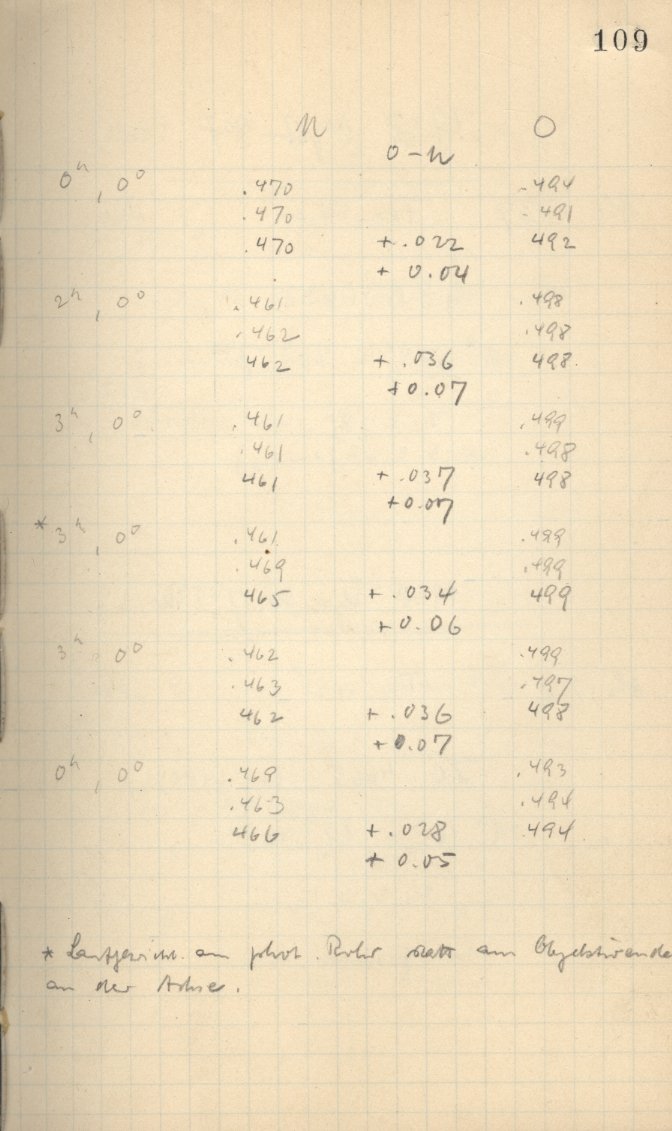 109
N O
O-N
0h, 0° .470 .494
.470 .491
.470 +.022 492
+ 0.04
2h, 0° .461 .498
.462 .498
462 +.036 498.
+0.07
3h, 0° .461 .499
.461 .498
461 +.037 498
+0.07
*3h, 0° .461 .499
.469 .499
465 +.034 499
+0.06
3h, 0° .462 .499
.463 .497
462 +.036 498
+0.07
0h, 0° .469 .493
.463 .494
466 +.028 494
+ 0.05
* Laufgewicht am phot. Rohr statt am Objektivende
an der Achse.